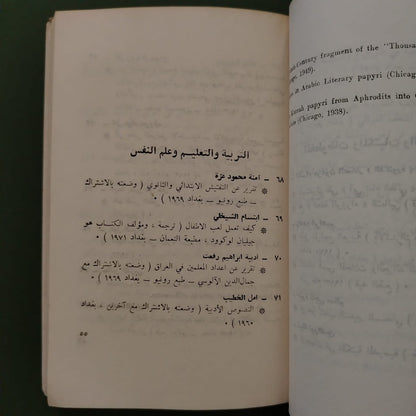 التربية والتعليم وعلم النفس
٦٨ – آمنة محمود عزة
تقرير عن التفتيش الابتدائي والثانوي ( وضعته بالاشتراك
– طبع رونيو – بغداد ١٩٦٩ ) ٠
٦٩ – ابتسام الشيخلي
كيف تعمل لعب الاطفال ( ترجمة ، ومؤلف الكتاب هو
جيليان لوكوود ، مطبعة النعمان – بغداد ١٩٧١ ) ٠
٧٠ – اديبة ابراهيم رفعت
تقرير عن اعداد المعلمين في العراق ( وضعته بالاشتراك مع
جمال‌الدين الآلوسي – طبع رونيو – بغداد ١٩٦٩ ) ٠
٧١ – امل الخطيب
النصوص الأدبية ( وضعته بالاشتراك مع آخرين ، بغداد
١٩٦٠ ) ٠
٥٥
Century fragment of the "Thousa
1949).
in Arabic Literary papyri (Chicag
papyri from Aphrodits into
(Chicago, 1938).